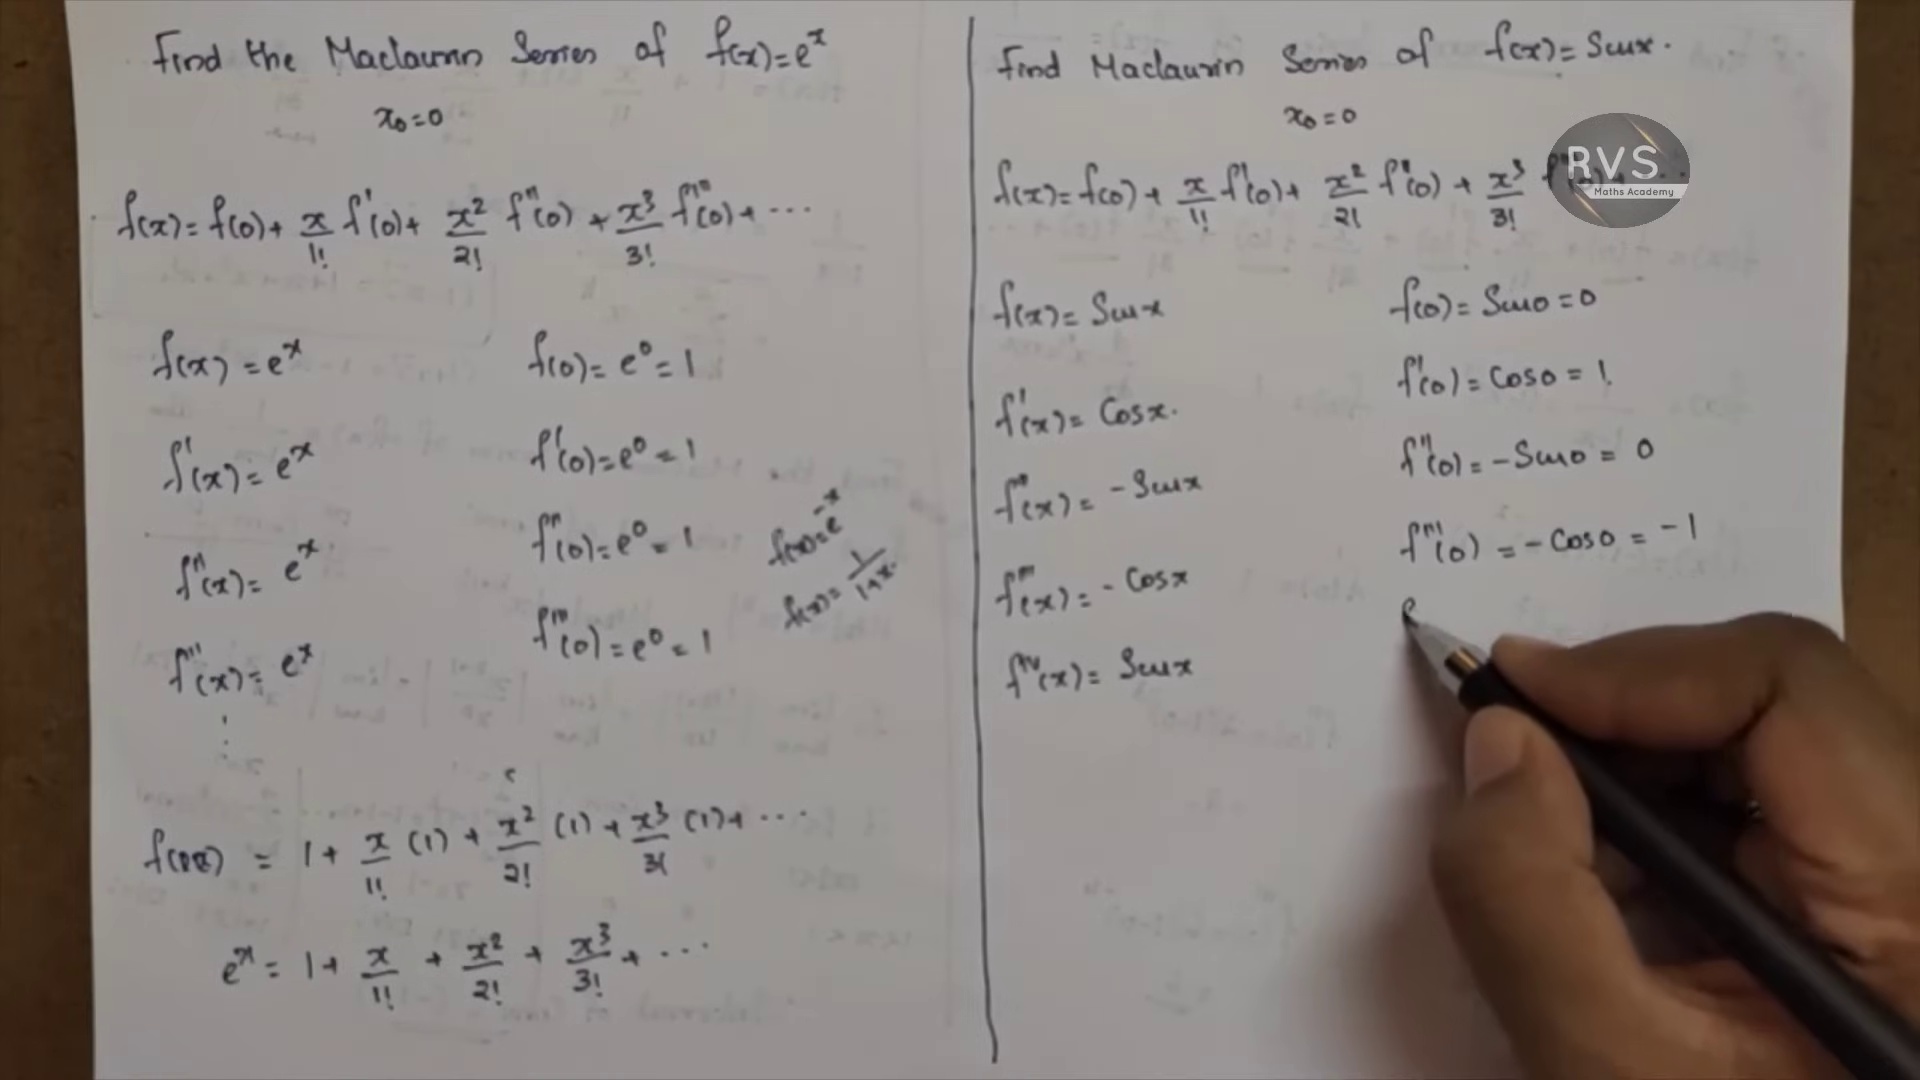 Find the Maclaurin Series of f(x)=eˣ
x₀=0
f(x)=f(0)+ x/1! f'(0)+ x²/2! f''(0) + x³/3! f'''(0)+ ···
f(x) = eˣ f(0)= e⁰= 1
f'(x)= eˣ f'(0)=e⁰ = 1
f''(x)= eˣ f''(0)=e⁰ = 1
f'''(x)= eˣ f'''(0)=e⁰ = 1
f(x)=e⁻ˣ
f(x)= 1/1+x.
= 1+ x/1! (1) + x²/2! (1) + x³/3! (1)+ ···
eˣ = 1+ x/1! + x²/2! + x³/3! + ···
Find Maclaurin Series of f(x)= Sinx.
x₀=0
RVS
Maths Academy
f(x)=f(0)+ x/1! f'(0)+ x²/2! f''(0) + x³/3!
f(x)= Sinx f(0)= Sin0=0
f'(x)= Cosx. f'(0)= Cos0= 1.
f''(x)= -Sinx f''(0)= -Sin0= 0
f'''(x)= -Cosx f'''(0) = -Cos0= -1
fⁱᵛ(x)= Sinx